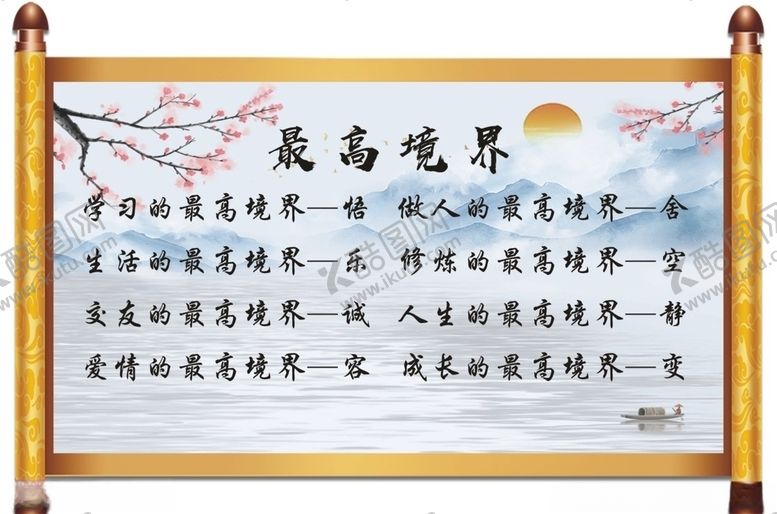 最高境界
学习的最高境界—悟 做人的最高境界—舍
生活的最高境界—乐 修炼的最高境界—空
交友的最高境界—诚 人生的最高境界—静
爱情的最高境界—容 成长的最高境界—变
酷图网
www.ikutu.com